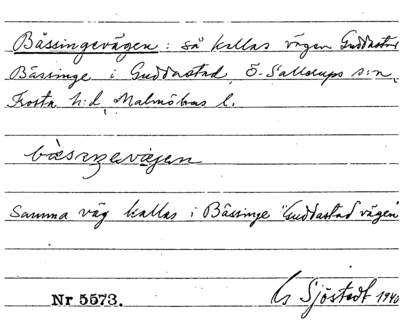 Bässingevägen : så kallas vägen Guddastad
Bässinge i Guddastad, Ö. Sallerups s:n,
Frosta h:d, Malmöhus l.
Samma väg kallas i Bässinge "Guddastad vägen"
Nr 5573.
Sjöstedt 1940